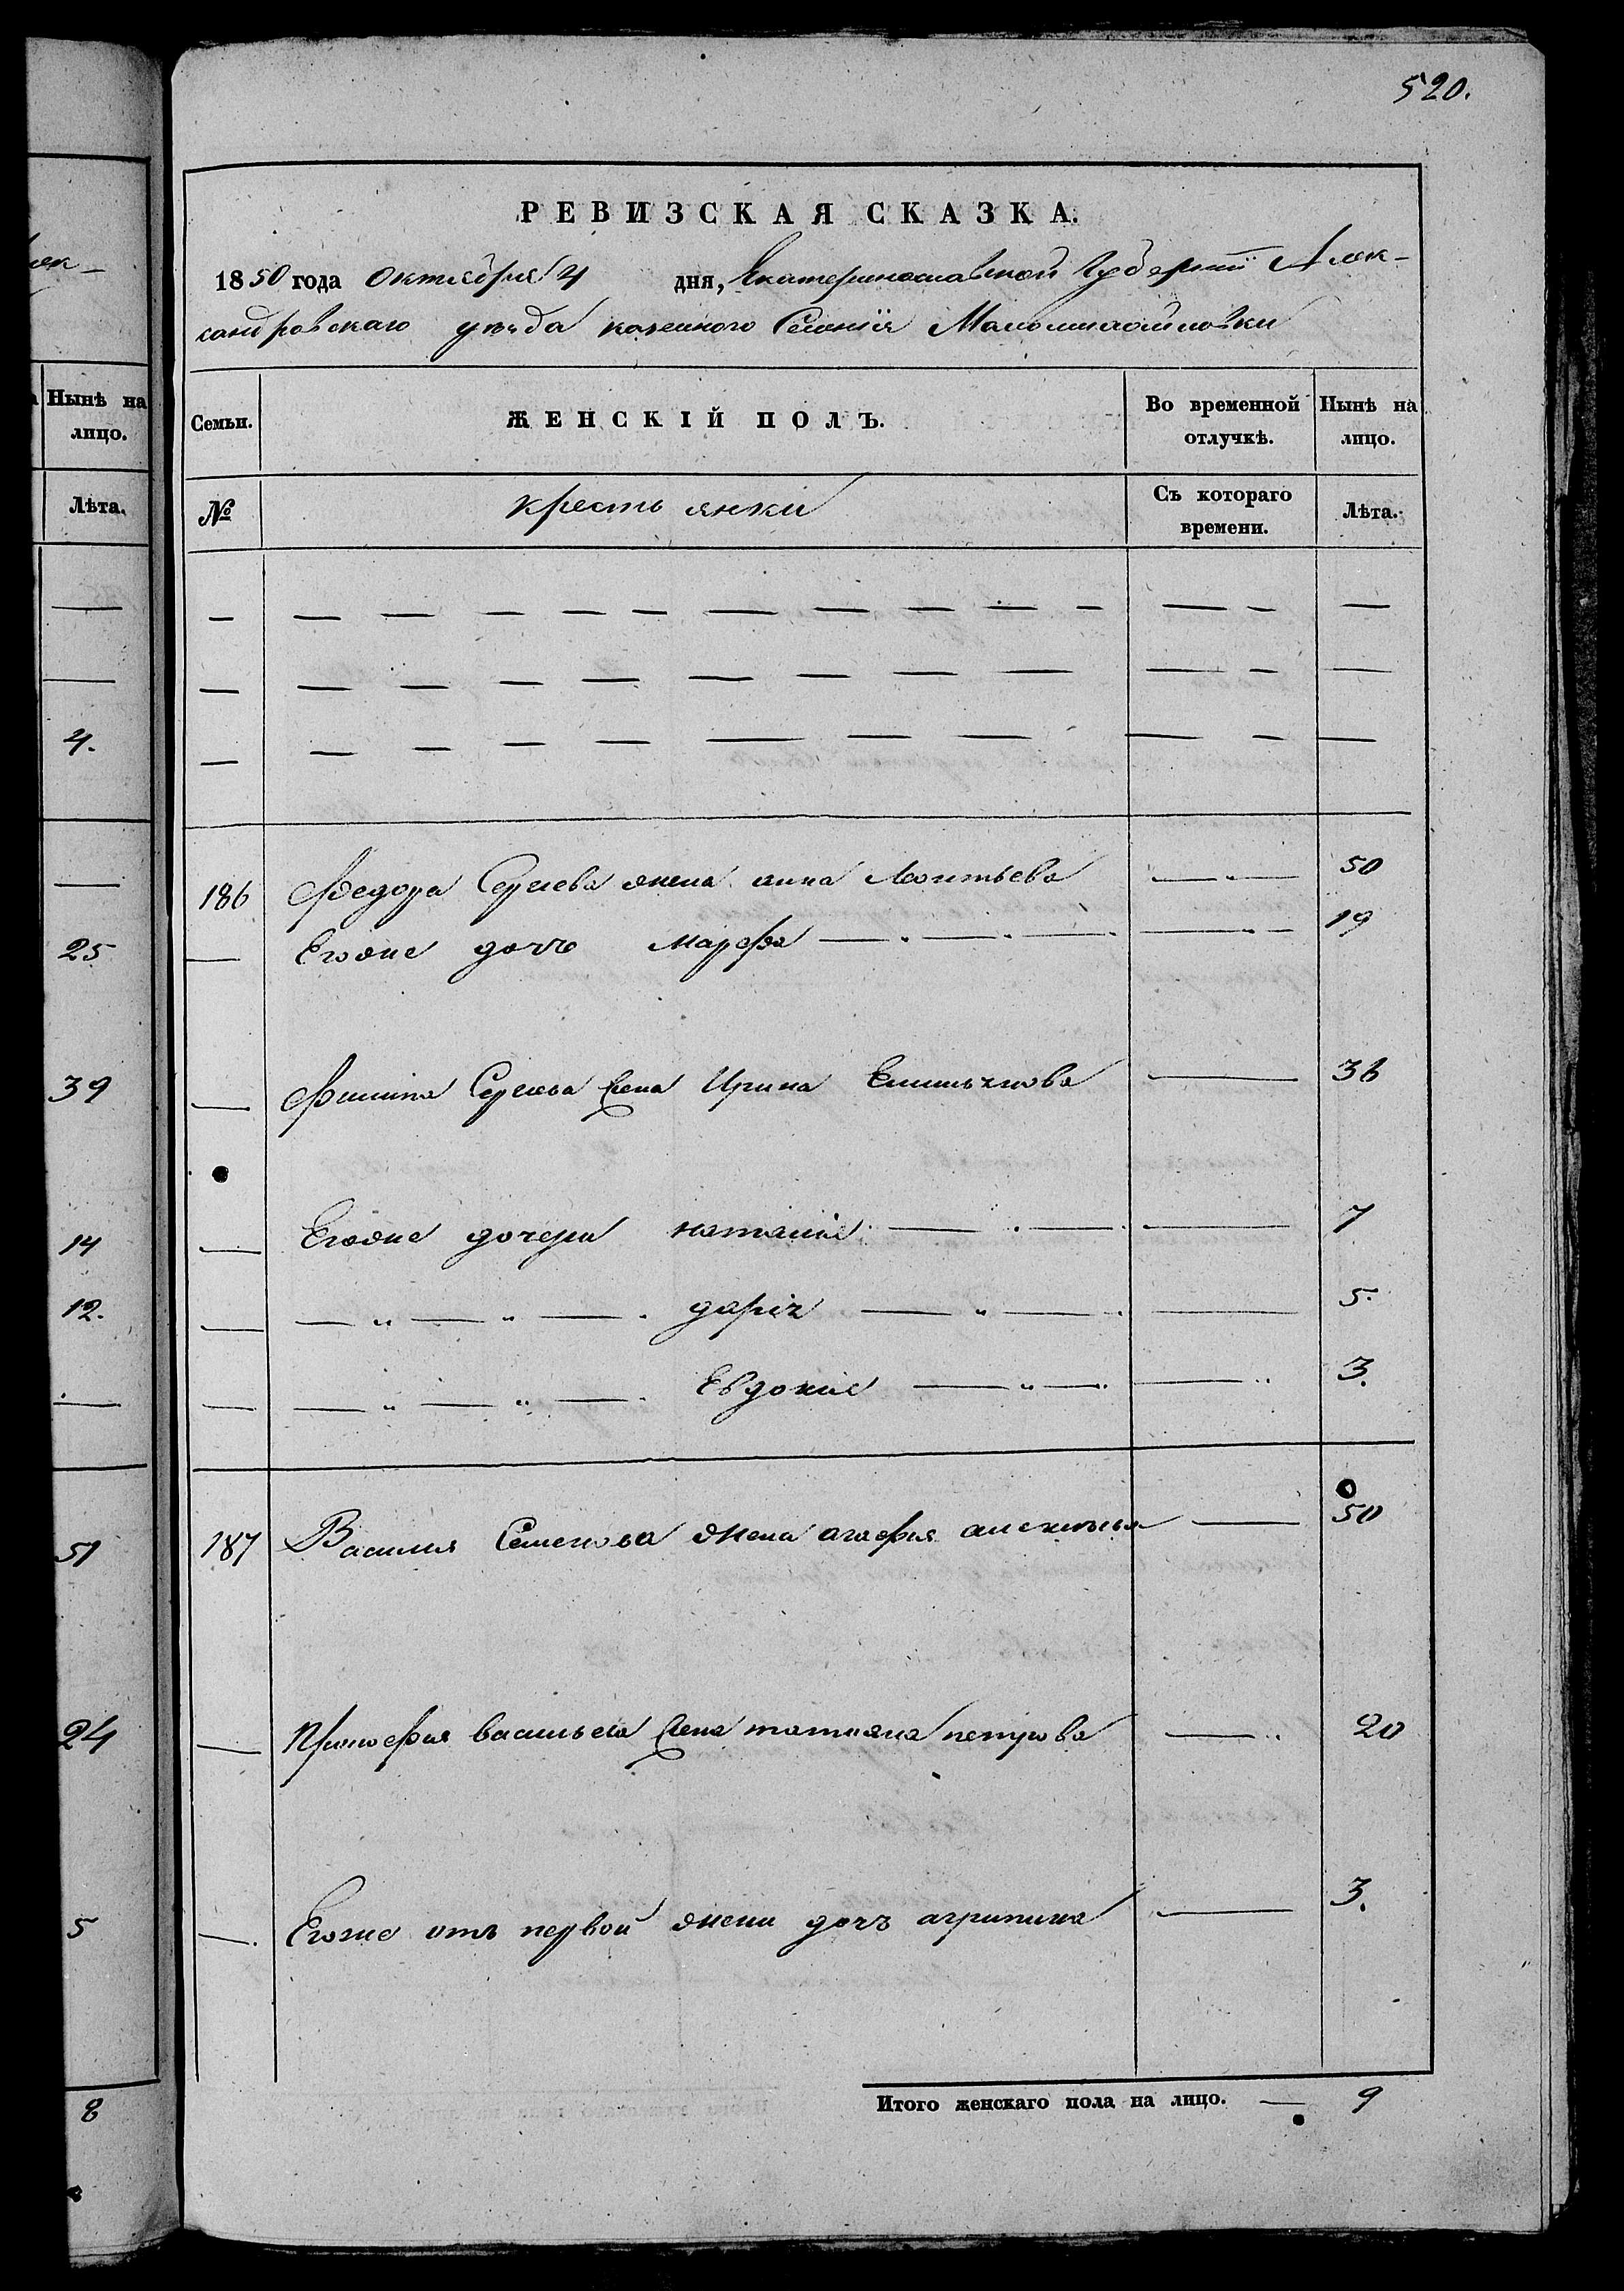 520.
РЕВИЗСКАЯ СКАЗКА.
1850 года Октября 4 дня, Екатеринославской Губернии Алек-
сандровскаго уезда казенного Селения Маломихайловки
Семьи. ЖЕНСКІЙ ПОЛЪ. Во временной отлучкѣ. Нынѣ на лицо.
№ крестьянки Съ котораго времени. Лѣта.
186 Федора Сергеева жена анна Леонтьева 50
Егоже дочь Марфа 19
Филипа Сергеева жена Ирина 36
Егоже дочери наталия 7
дария 5.
Евдокия 3.
187 Василия Семенова жена агафия 50
васильева жена татияна петрова 20
Егоже отъ первой жены дочь агрипина 3.
Итого женскаго пола на лицо. — 9
лек-
Нынѣ на
лицо.
Лѣта.
4.
25
39
14
12.
51
24
5
8